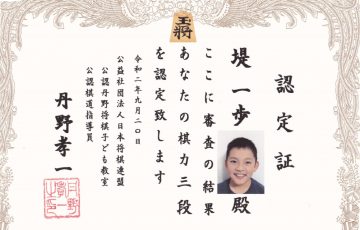 玉将
認定証
堤一歩殿
ここに審査の結果
あなたの棋力三段
を認定致します
令和二年九月二〇日
公益社団法人日本将棋連盟
公認丹野将棋子ども教室
公認棋道指導員
丹野孝一